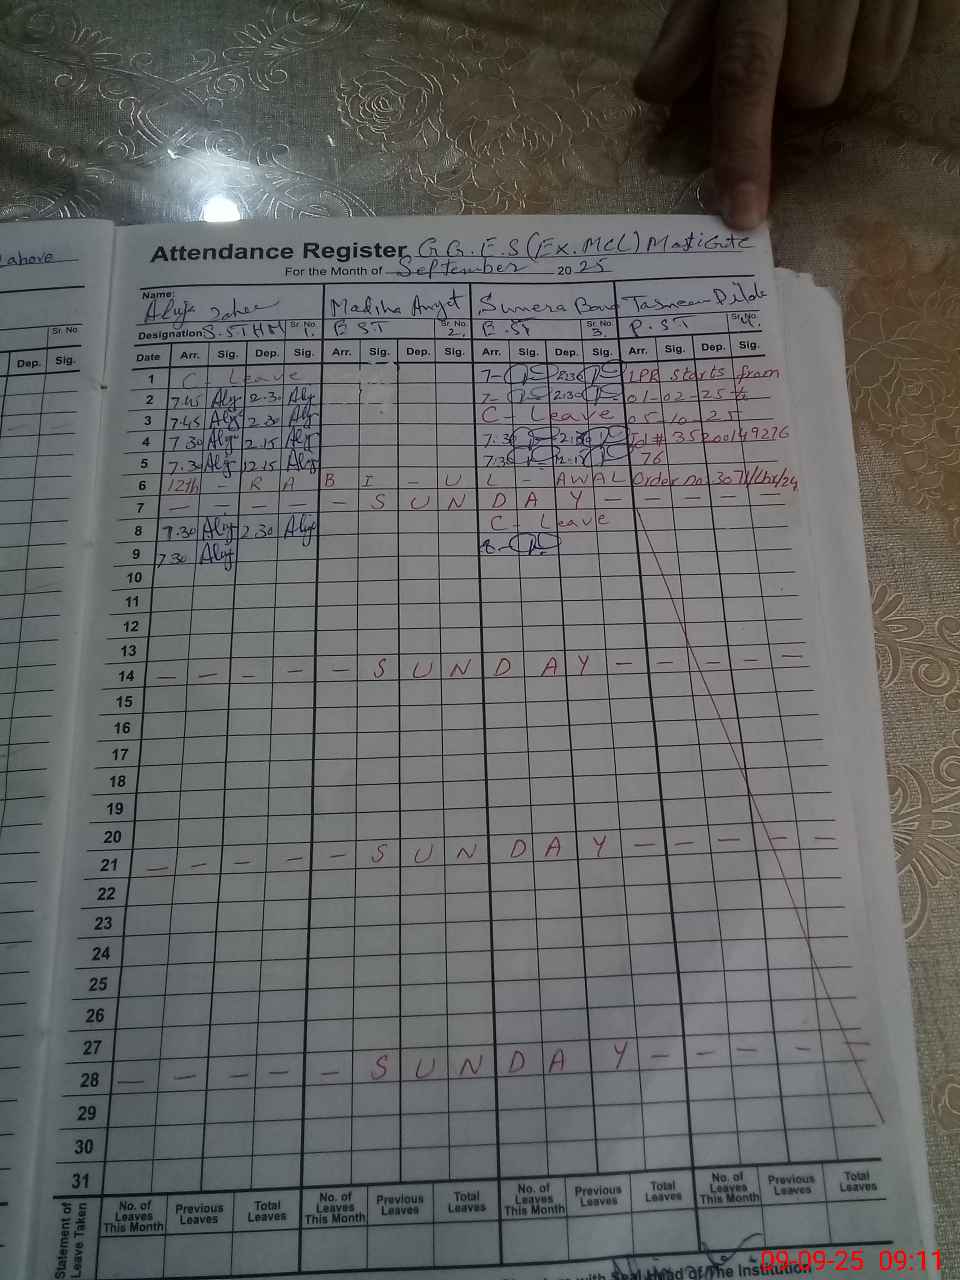 ahove
Attendance Register G.G.E.S (Ex. MCL) Masti Gate
For the Month of September 2025
Name: Madiha Sumera Tasneem
Designation S.STHM Sr. No. 1. EST Sr. No. 2. E.ST Sr. No. 3. P.ST Sr. No. 4.
Sr. No.
Dep. Sig.
Date Arr. Sig. Dep. Sig. Arr. Sig. Dep. Sig. Arr. Sig. Dep. Sig. Arr. Sig. Dep. Sig.
1 C - Leave 7- 2:30 LPR starts from
2 7.45 2.30 7- 2:30 01-02-25 to
3 7.45 2.30 C - Leave 05-10-25
4 7.30 2.15 7.30 Id # 35200149276
5 7.30 12.15 7.30 76
6 12th - R A B I - U L - AWAL Order no 3071/Lhr/24
7 - - - - - S U N D A Y - - - - -
8 7.30 2.30 C - Leave
9 7.30 8-
10
11
12
13
14 - - - - - S U N D A Y - - - - -
15
16
17
18
19
20
21 - - - - - S U N D A Y - - - - -
22
23
24
25
26
27
28 - - - - - S U N D A Y - - - - -
29
30
31
Statement of Leave Taken
No. of Leaves This Month Previous Leaves Total Leaves No. of Leaves This Month Previous Leaves Total Leaves No. of Leaves This Month Previous Leaves Total Leaves No. of Leaves This Month Previous Leaves Total Leaves
with Seal Head of The Institution
09-09-25 09:11